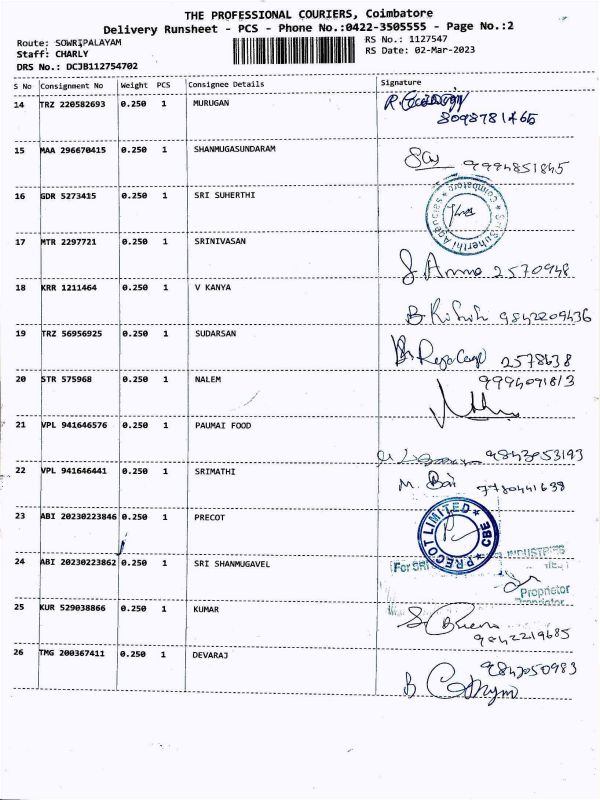 THE PROFESSIONAL COURIERS, Coimbatore
Delivery Runsheet - PCS - Phone No.:0422-3505555 - Page No.:2
Route: SOWRIPALAYAM
RS No.: 1127547
Staff: CHARLY
RS Date: 02-Mar-2023
DRS No.: DCJB112754702
S No Consignment No Weight PCS Consignee Details Signature
14 TRZ 220582693 0.250 1 MURUGAN
8098781465
15 MAA 296670415 0.250 1 SHANMUGASUNDARAM
9994851845
16 GDR 5273415 0.250 1 SRI SUHERTHI
Sri Suherthi Agencies * Coimbatore *
17 MTR 2297721 0.250 1 SRINIVASAN
2570948
18 KRR 1211464 0.250 1 V KANYA
9842209436
19 TRZ 56956925 0.250 1 SUDARSAN
2578638
20 STR 575968 0.250 1 NALEM
9994091813
21 VPL 941646576 0.250 1 PAUMAI FOOD
9843053193
22 VPL 941646441 0.250 1 SRIMATHI
M. 7780441638
23 ABI 20230223846 0.250 1 PRECOT
PRECOT LIMITED * CBE *
24 ABI 20230223862 0.250 1 SRI SHANMUGAVEL
For SRI INDUSTRIES
Proprietor
25 KUR 529038866 0.250 1 KUMAR
9842219685
26 TMG 200367411 0.250 1 DEVARAJ
9843050983